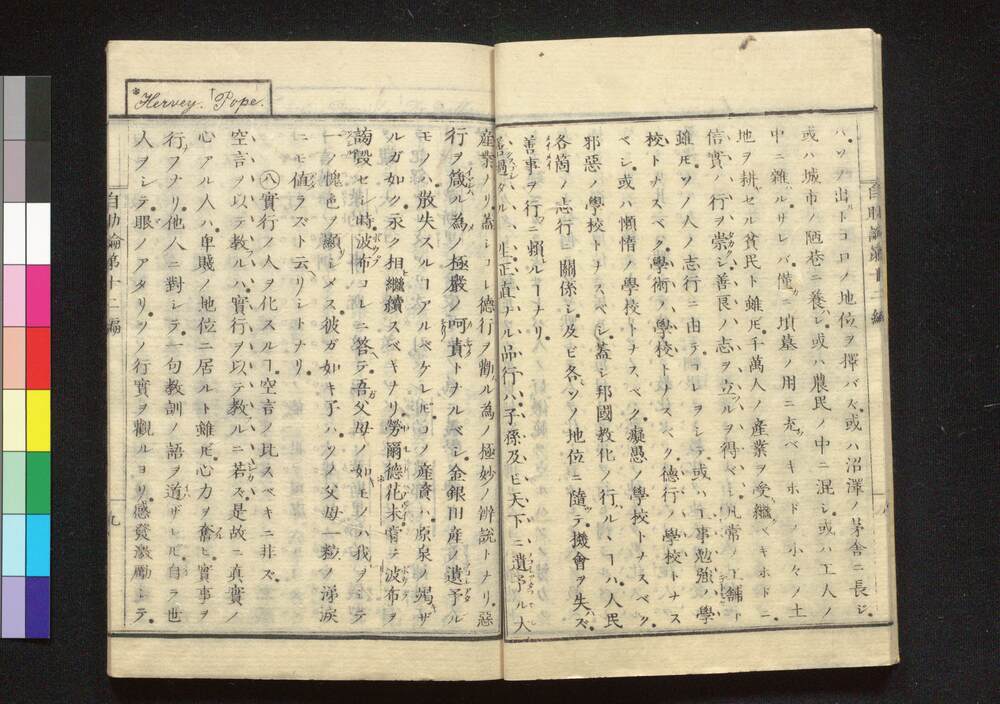 ハ、ソノ出トコロノ地位ヲ擇バズ或ハ沼澤ノ茅舍ニ長ジ
或ハ城市ノ陋巷ニ養ハレ或ハ農民ノ中ニ混シ或ハ工人ノ
中ニ雜ハルサレバ僅ニ墳墓ノ用ニ充ツベキホドノ小々ノ土
地ヲ耕セル貧民ト雖𪜈千萬人ノ產業ヲ受繼ベキホドニ
信實ノ行ヲ崇シ善良ノ志ヲ立ルヲ得ベシ凡常ノ工舖ト
雖𪜈ソノ人ノ志行ニ由テコレヲシテ或ハ工事勉強ノ學
校トナスベク學術ノ學校トナスベク德行ノ學校トナス
ベシ或ハ懶惰ノ學校トナスベク癡愚ノ學校トナスベク
邪惡ノ學校トナスベシ蓋シ邦國教化ノ行ルヽヿハ人民
各箇ノ志行ニ關係シ及ビ各ソノ地位ニ隨テ機會ヲ失ズ
善事ヲ行ニ賴ルヿナリ
善過タル一生正直ナル品行ハ子孫及ビ天下ニ遺予ル大
Hervey. Pope.
產業ナリ蓋シコレ德行ヲ勸ル為ノ極妙ノ辨說トナリ惡
行ヲ箴ル為ノ極嚴ノ呵責トナルベシ金銀田産ノ遺予ル
モノハ散失スルヿアルベケレ𪜈コノ產資ハ原泉ノ竭ザ
ルガ如ク永ク相繼續スベキナリ勞爾德花末膂テ波布ヲ
譏毀セシ時波布コレニ答テ吾父母ノ如キモノハ我ヲシテ
一ノ愧色ノ顯シメズ彼ガ如キ子ハソノ父母一點ノ涕淚
ニモ値ラズト云リシトナリ
㊇實行ノ人ヲ化スルヿ空言ノ比スベキニ非ズ
空言ヲ以テ教ルハ實行ヲ以テ教ルニ若ズ是故ニ真實ノ
心アル人ハ卑賤ノ地位ニ居ルト雖𪜈心力ヲ奮ヒ實事ヲ
行フナリ他人ニ對シテ一句教訓ノ語ヲ道ザレ𪜈自ラ也
人ヲシテ眼ノアタリソノ行實ヲ觀ルヨリ感發激勵シテ
自助論第十二編
九
自助論第十二編